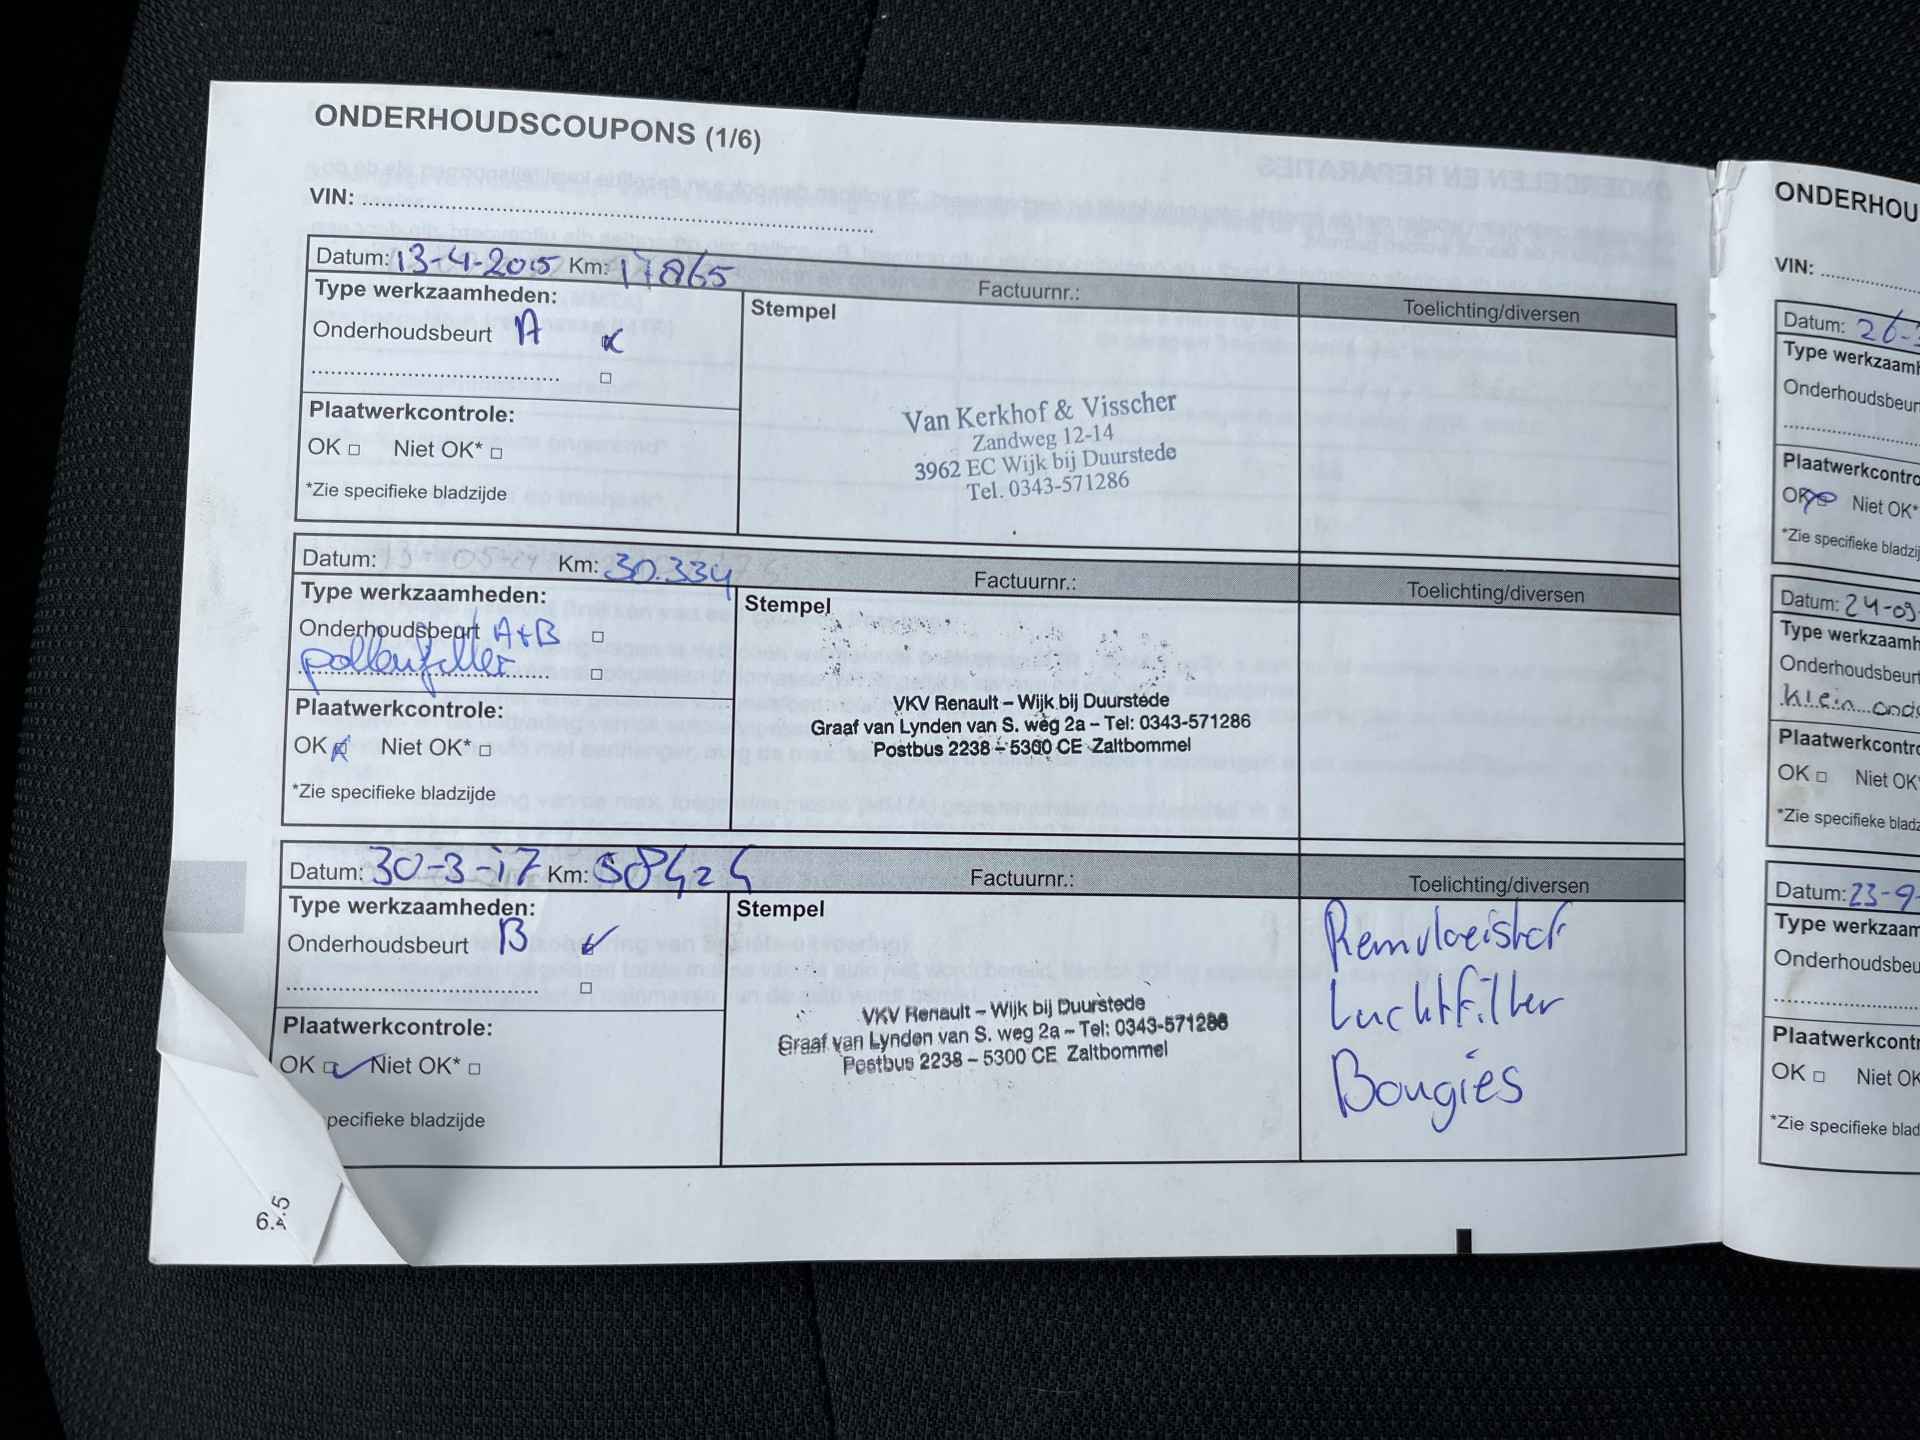 ONDERHOUDSCOUPONS (1/6)
VIN:
Datum: 13-4-2015 Km: 17865
Factuurnr.:
Toelichting/diversen
Type werkzaamheden:
Onderhoudsbeurt A
Plaatwerkcontrole:
OK Niet OK*
*Zie specifieke bladzijde
Stempel
Van Kerkhof & Visscher
Zandweg 12-14
3962 EC Wijk bij Duurstede
Tel. 0343-571286
Datum: Km: 30.334
Factuurnr.:
Toelichting/diversen
Type werkzaamheden:
Onderhoudsbeurt A+B
pollenfilter
Plaatwerkcontrole:
OK Niet OK*
*Zie specifieke bladzijde
Stempel
VKV Renault – Wijk bij Duurstede
Graaf van Lynden van S. weg 2a – Tel: 0343-571286
Postbus 2238 – 5300 CE Zaltbommel
Datum: 30-3-17 Km:
Factuurnr.:
Toelichting/diversen
Type werkzaamheden:
Onderhoudsbeurt B
Plaatwerkcontrole:
OK Niet OK*
pecifieke bladzijde
Stempel
VKV Renault – Wijk bij Duurstede
Graaf van Lynden van S. weg 2a – Tel: 0343-571286
Postbus 2238 – 5300 CE Zaltbommel
Remvloeistof
Luchtfilter
Bougies
6.5
ONDERHOU
VIN:
Datum: 26-
Type werkzaamh
Onderhoudsbeur
Plaatwerkcontro
OK Niet OK*
*Zie specifieke bladzij
Datum: 24-09
Type werkzaamh
Onderhoudsbeurt
Klein ond
Plaatwerkcontro
OK Niet OK*
*Zie specifieke bladz
Datum: 23-9-
Type werkzaam
Onderhoudsbeu
Plaatwerkcontr
OK Niet OK
*Zie specifieke blad